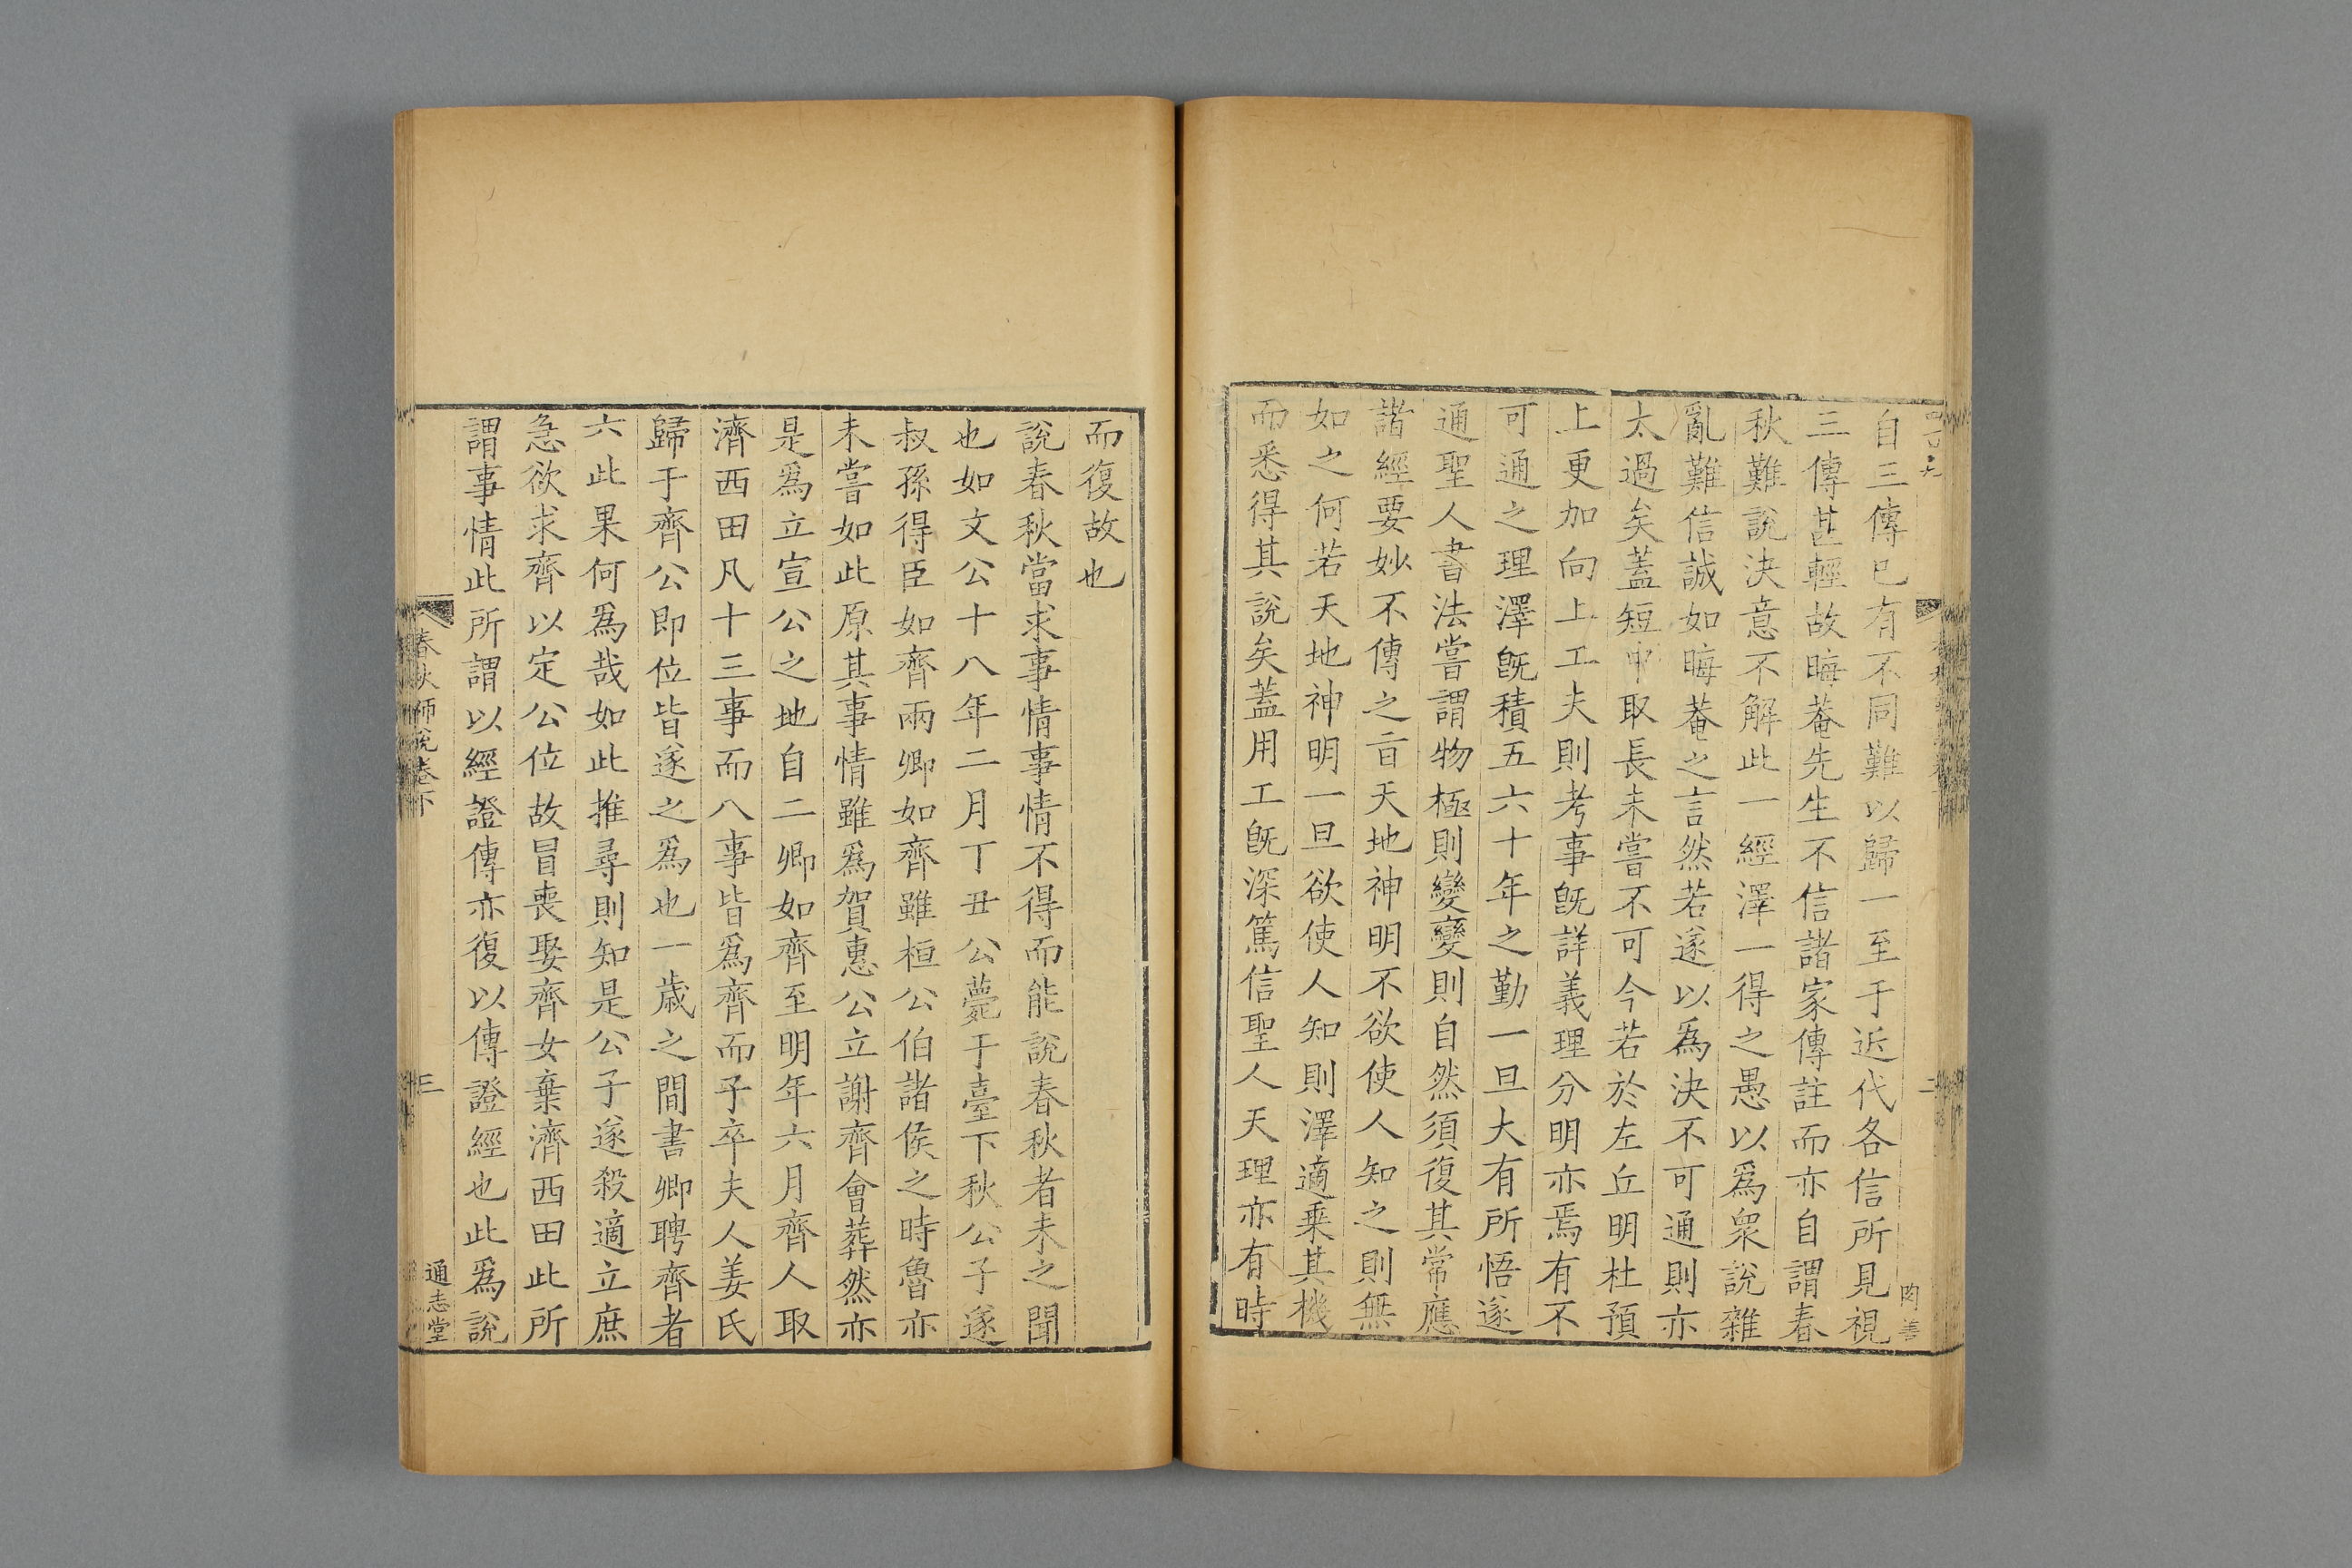 自三傳已有不同難以歸一至于近代各信所見視
三傳甚輕故晦菴先生不信諸家傳註而亦自謂春
秋難說決意不解此一經澤一得之愚以爲衆說雜
亂難信誠如晦菴之言然若遂以爲決不可通則亦
太過矣蓋短中取長未嘗不可今若於左丘明杜預
上更加向上工夫則考事旣詳義理分明亦焉有不
可通之理澤旣積五六十年之勤一旦大有所悟遂
通聖人書法嘗謂物極則變變則自然須復其常應
諸經要妙不傳之旨天地神明不欲使人知之則無
如之何若天地神明一旦欲使人知則澤適乗其機
而悉得其說矣蓋用工旣深篤信聖人天理亦有時
而復故也
說春秋當求事情事情不得而能說春秋者未之聞
也如文公十八年二月丁丑公薨于臺下秋公子遂
叔孫得臣如齊兩卿如齊雖桓公伯諸侯之時魯亦
未嘗如此原其事情雖爲賀惠公立謝齊會葬然亦
是爲立宣公之地自二卿如齊至明年六月齊人取
濟西田凡十三事而八事皆爲齊而子卒夫人姜氏
歸于齊公即位皆遂之爲也一歲之間書卿聘齊者
六此果何爲哉如此推尋則知是公子遂殺適立庶
急欲求齊以定公位故冒喪娶齊女棄濟西田此所
謂事情此所謂以經證傳亦復以傳證經也此爲說
春秋師說卷下
三
通志堂